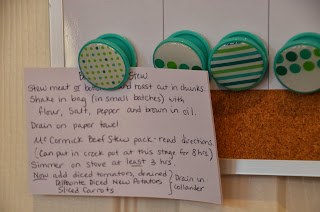 Stew
Stew meat or roast cut in chunks.
Shake in bag (in small batches) with
flour, Salt, pepper and brown in oil.
Drain on paper towel.
McCormick Beef Stew pack - read directions.
(Can put in crock pot at this stage for 8 hrs.)
Simmer on stove at least 3 hrs.
Now add diced tomatoes, drained
Delmonte Diced New Potatoes
Sliced Carrots
Drain in
Collander